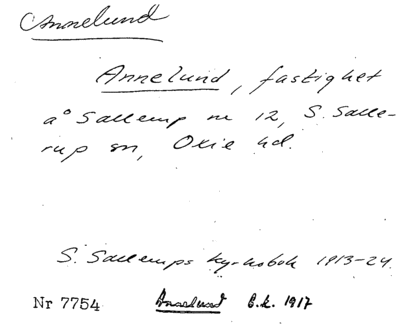 Annelund
Annelund, fastighet
å Sallerup nr 12, S. Salle-
rup sn, Oxie hd.
S. Sallerups kyrkobok 1913-24.
Nr 7754 Annelund E.k. 1917